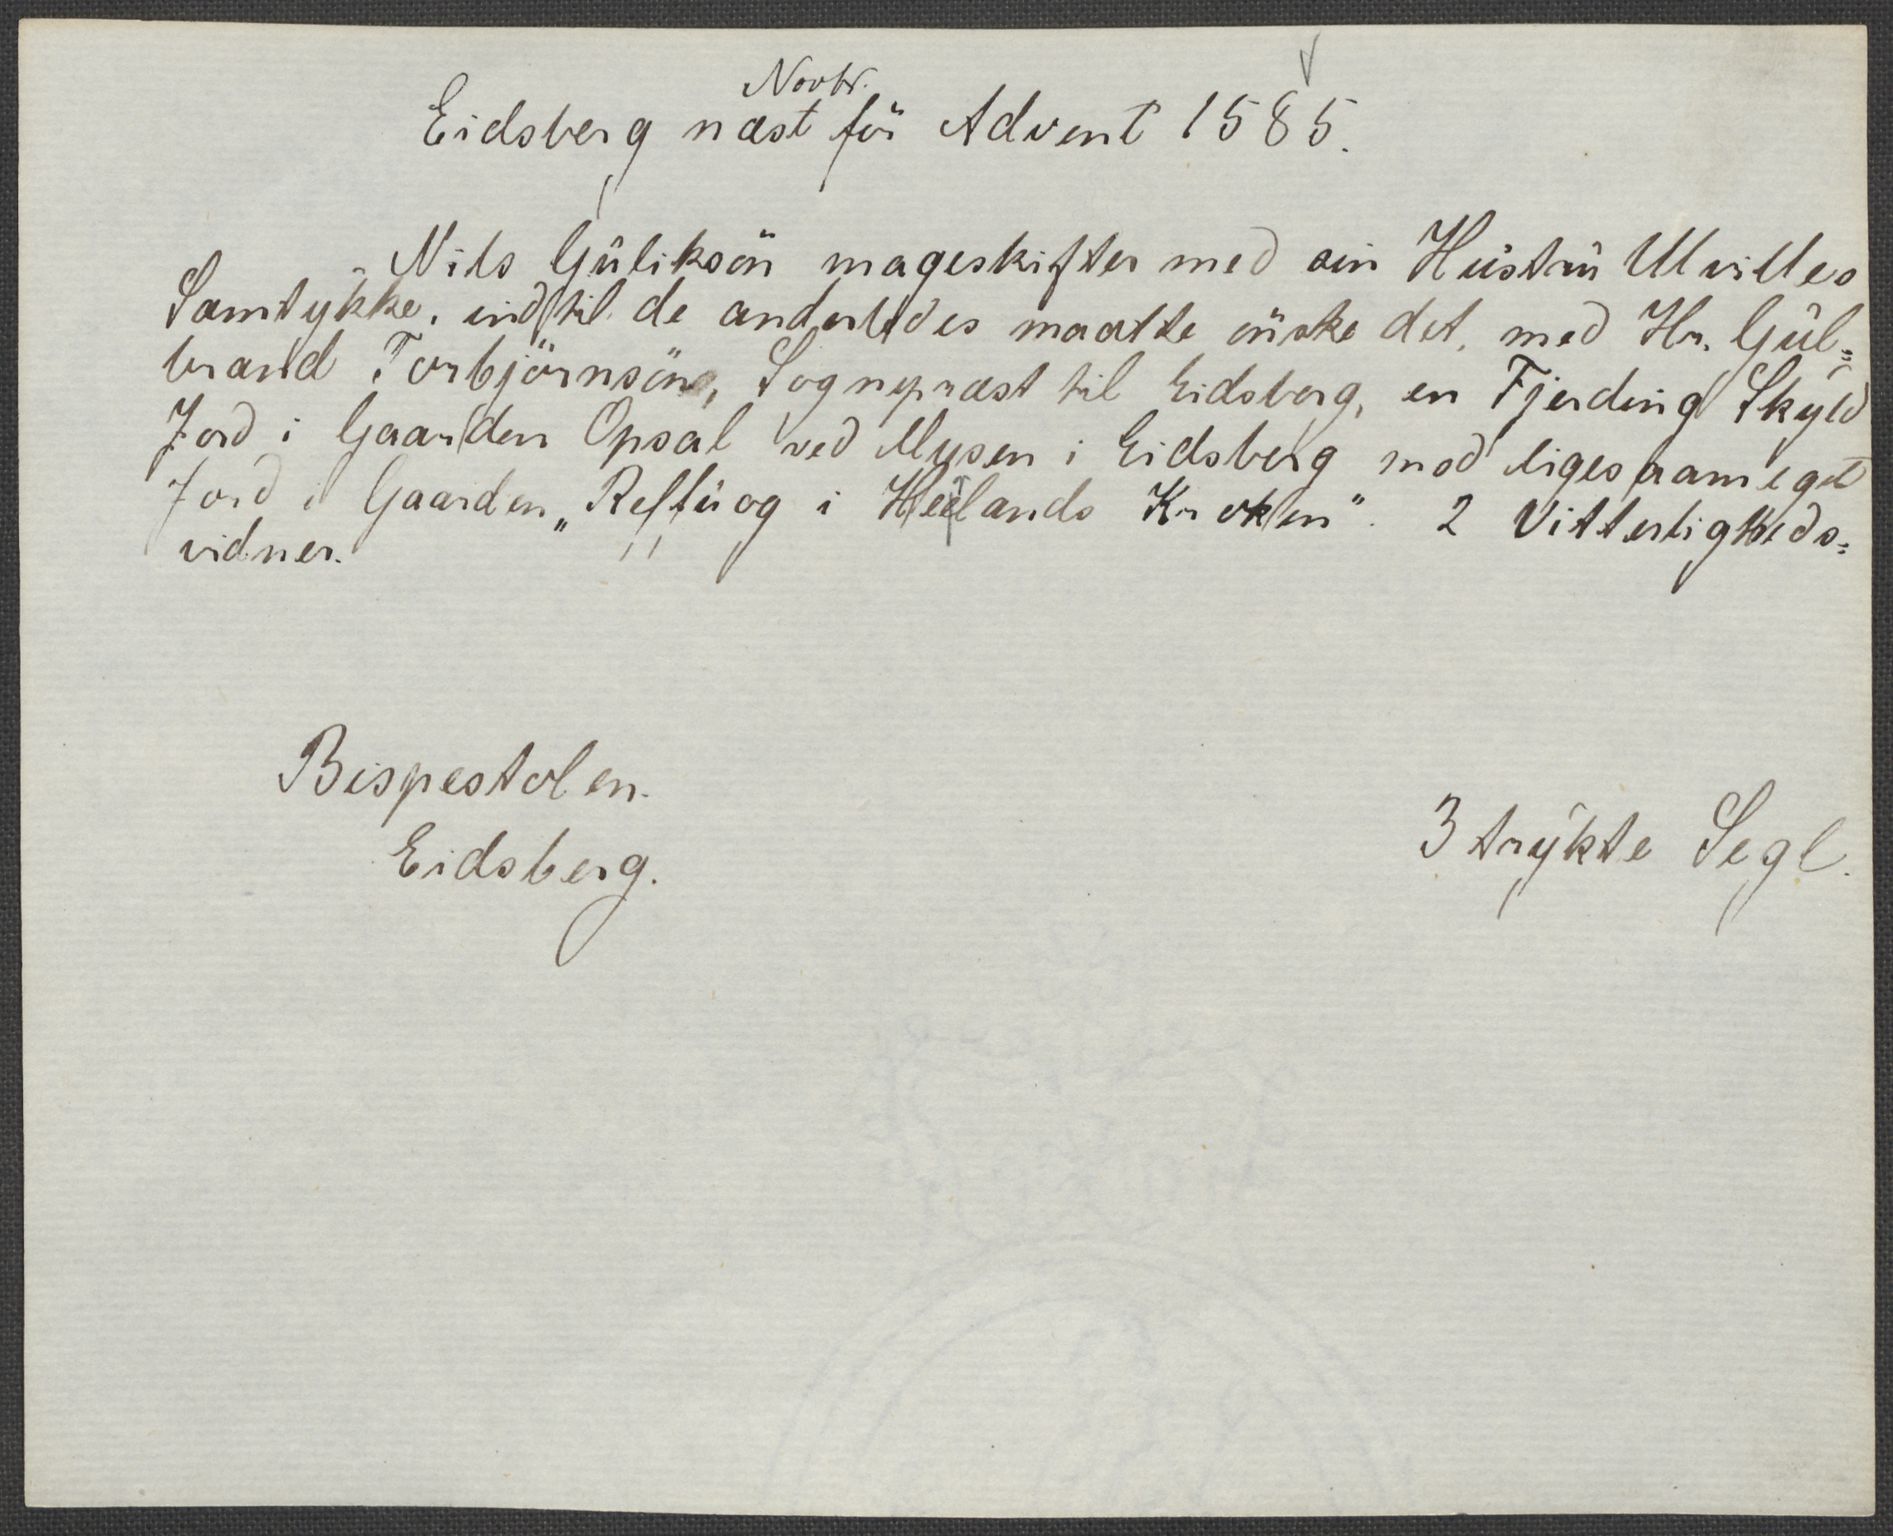 Novbr.
Eidsberg næst för Advent 1585.
Nils Guliksön mageskifter med sin Hustru Ulvilles
Samtykke, indtil de anderledes maatte önske det, med Hr. Gul=
brand Torbjörnsön, Sognepræst til Eidsberg, en Fjerding Skyld
Jord i Gaarden Opsal ved Mysen i Eidsberg mod ligesaameget
Jord i Gaarden „Reffuog i Heelands Kroken“. 2 Vitterligheds=
vidner.
Bispestolen.
Eidsberg.
3 trykte Segl.